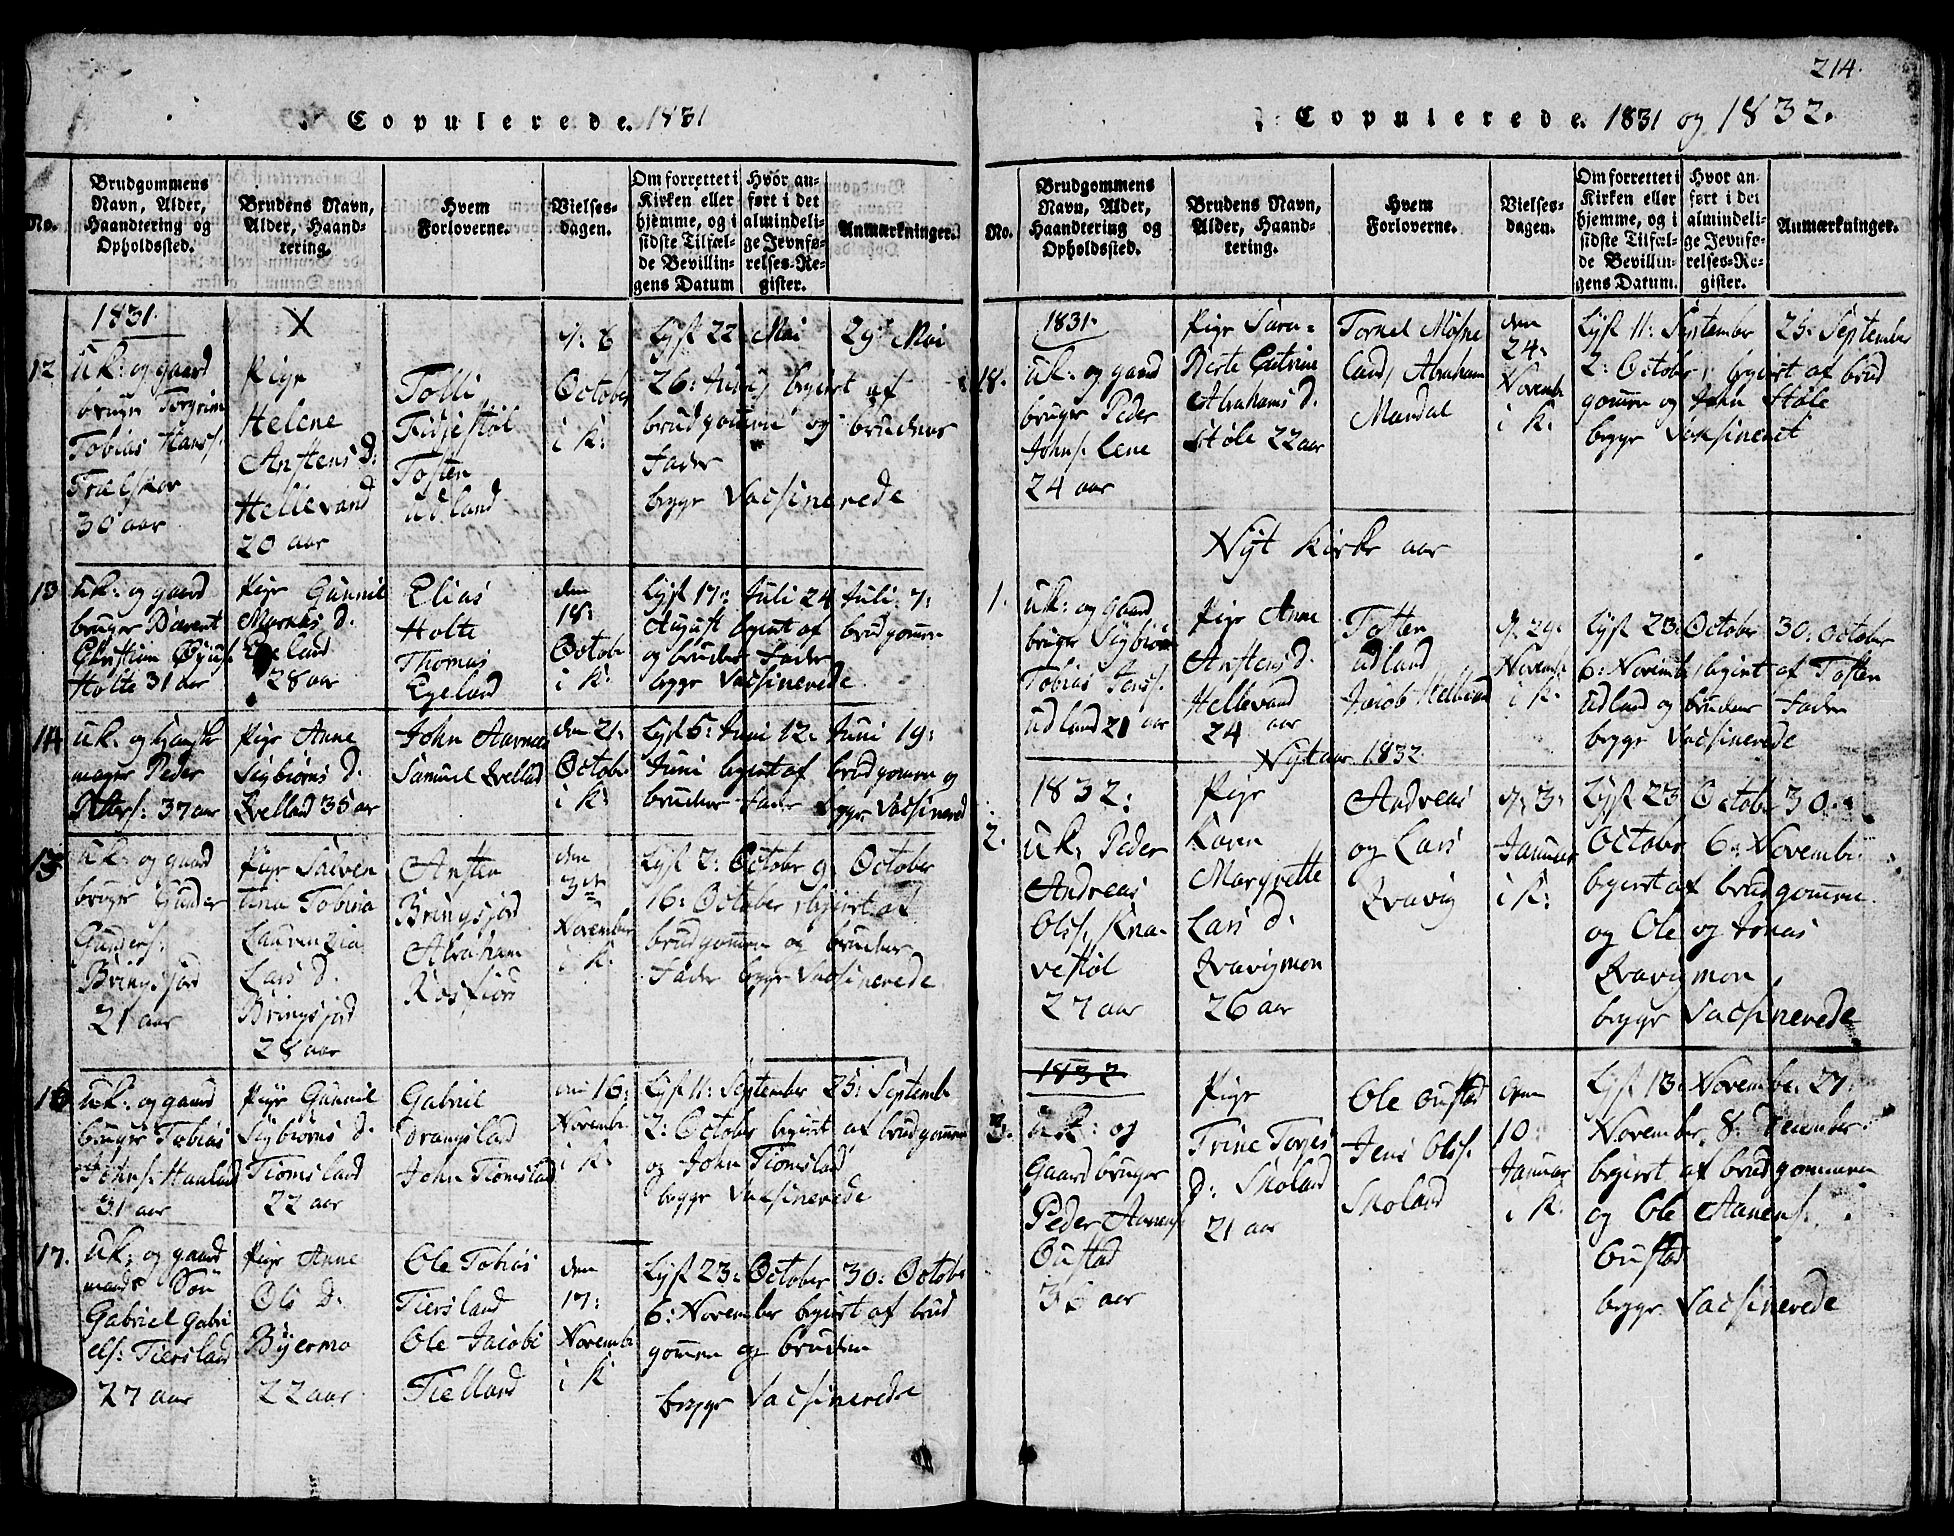 Copulerede. 1831
No.
Brudgommens Navn, Alder, Haandtering og Opholdssted.
Brudens Navn, Alder, Haandtering.
Hvem Forloverne.
Vielses-dagen.
Om forrettet i Kirken eller hjemme, og i sidste Tilfælde Bevillingens Datum
Hvor anført i det almindelige Jevnførelses-Register.
Anmærkninger.
1831.
12
uk: og gaard
bruger Torgrim
Tobias Hans/.
Trælskor
30 aar
X
Pige
Helene
Anstens D:
Hellevand
20 aar
Tolli
Fidjestøl
Tosten
Udland
d: 6
October
i K:
Lyst 22 Mai 29 Mai
26: Junij begiert af
brudgommen og brudens
Fader
begge Vacsinerede
13
uk: og gaard
bruger Bærent
Christian
Holte 31 aar
Pige Gunnil
Markus d.
28 aar
Elias
Holte
Thomas
Egeland
den
18:
October
i K:
Lyst 17: Juli 24 Juli 7:
August begiert af brudgommen
og brudens Fader
begge Vacsinerede
14
uk: og
mager Peder
37 aar
Pige Anne
Sigbiørns D.
Qvelland 35 aar
John Aavnes
Samuel Qvelland
den 21:
October
i K:
Lyst 5: Juni 12: Juni 19:
Juni begiert af brudgommen og
brudens Fader begge Vacsinered
15
uk: og gaard
bruger Gunder
Gunders/.
Bringsjord
21 aar
Pige Salven
tina Tobina
Laurenzia
Lars D.
Bringsjord
28 aar
Ansten
Bringsjord
Abraham
Rosfiord
den
3de
November
i K:
Lyst 2: October 9: October
16: October, begiert af
brudgommen og brudens
Fader begge Vacsinerede
16
uk: og gaard
bruger Tobias
Johns/. Haaland
31 aar
Pige Gunnil
Sigbiørns d.
Tiomsland
22 aar
Gabriel
Drangsland
John Tiomsland
den 16:
November
i K:
Lyst 11: September 25: Septemb
2: October begiert af brudgommen
og John Tiomsland
begge Vacsinerede
17.
uk: og gaard
mands Søn
Gabriel Gabri
els/: Tiersland
27 aar
Pige Anne
Ols D.
Byermo
22 aar
Ole Tobias
Tiersland
Ole Jacobs
Tielland
den
17:
November
i K
Lyst 23: October 30: October
6: November begiert af brud
gommen og bruden
begge Vacsinerede
214.
Copulerede. 1831 og 1832.
No.
Brudgommens Navn, Alder, Haandtering og Opholdssted.
Brudens Navn, Alder, Haandtering.
Hvem Forloverne.
Vielses-dagen.
Om forrettet i Kirken eller hjemme, og i sidste Tilfælde Bevillingens Datum.
Hvor anført i det almindelige Jevnførelses-Register.
Anmærkninger.
1831.
18.
uk: og gaard
bruger Peder
Johns/. Lene
24 aar
Pige Sara
Berte Catrine
Abrahams d.
Støle 22 aar
Tornel Møsne
land, Abraham
Mandal
den
24:
Novemb
i K:
Lyst 11: September 25: September
2: October, begiert af brud
gommen og John Støle
begge Vacsineret
Nyt Kirke aar
1.
uk: og gaard
bruger Sigbiørn
Tobias Jens/.
Udland 21 aar
Pige Anne
Anstens d.
Hellevand
24 aar
Tosten
Udland
Jacob Hellevand
d: 29:
Novemb
i K:
Lyst 23: October 30: October
6: Novembr, begiert af Tosten
Udland og brudens Fader
begge Vacsinerede
Nyt aar 1832
1832:
2.
uk: Peder
Andreas
Ols/. Kna-
vestøl
27 aar
Pige
Karen
Margrette
Lars d.
Qvavigmon
26 aar
Andreas
og Lars
Qvavig
d: 3:
Januar
i K:
Lyst 23 October 30
October 6: November
begiert af brudgommen
og Ole og Jonas
Qvavigmon
begge Vacsinerede
1832
3.
uk: og
Gaardbruger
Peder Aanens/
Oustad
36 aar
Pige
Trine Terjes
D: Skoland
21 aar
Ole Oustad
Jens Ols/.
Skoland
den
10:
Januar
i K.
Lyst 13: November 27:
November, 8: December
begiert af brudgommen
og Ole Aanens/.
Oustad
begge Vacsinerede